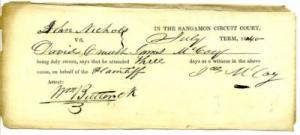 John Nichols IN THE SANGAMON CIRCUIT COURT,
VS. July TERM, 1840
David Emmett James McCoy
being duly sworn, says that he attended three days as a witness in the above
cause, on behalf of the Plaintiff
Attest: McCoy
Wm Butler Ck